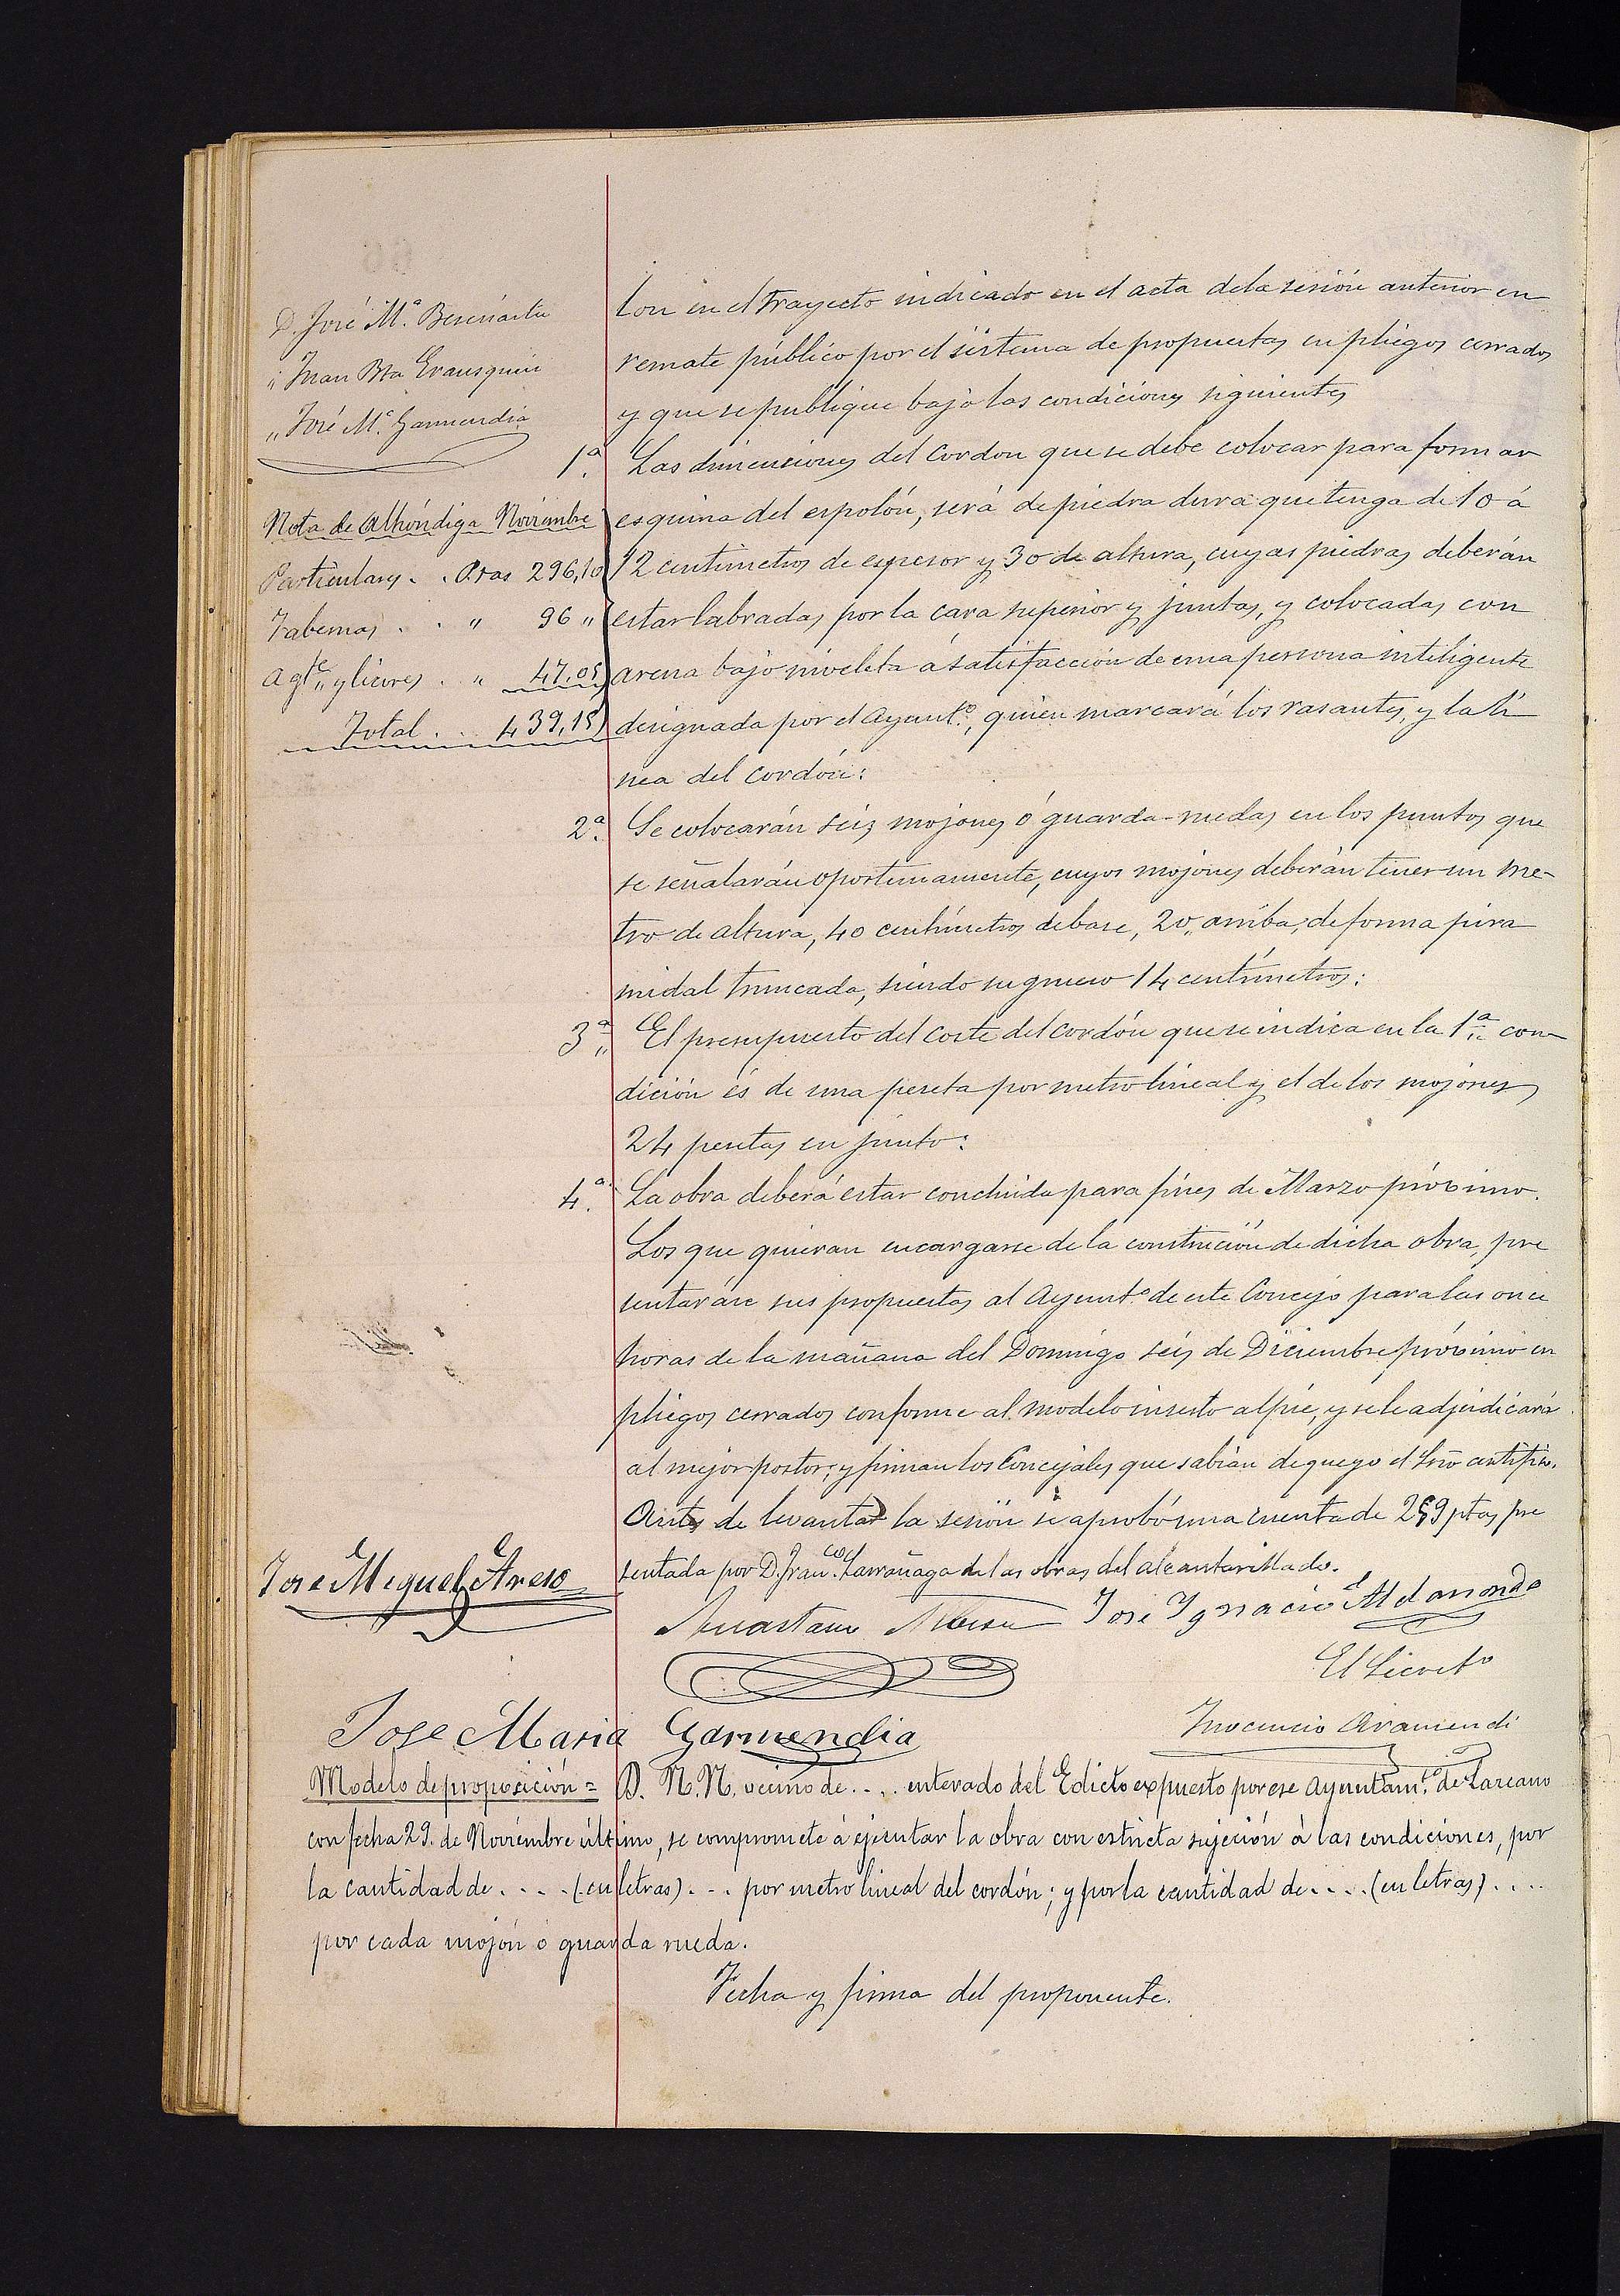 D. José M.ª Beseñartu
" Juan Bta Erausquin
" José M.ª Garmendia
Nota de Alhóndiga Noviembre
Particulares . . Ptas 296,10
Tabernas . . " 96 "
Agte. y licores . " 47,05
Total . . . 439,15
lon en el trayecto indicado en el acta de la sesión anterior en
remate público por el sistema de propuestas en pliegos cerrados
y que se publique bajo las condiciones siguientes
1.ª Las dimensiones del cordon que se debe colocar para formar
esquina del espolón, será de piedra dura que tenga de 10 á
12 centimetros de espesor y 30 de altura, cuyas piedras deberán
estar labradas por la cara superior y juntas, y colocadas con
arena bajo niveleta á satisfacción de una persona inteligente
designada por el Ayunt.º, quien marcará los rasantes, y la lí
nea del cordón:
2.ª Se colocarán seis mojones ó guarda-ruedas en los puntos que
se señalarán oportunamente, cuyos mojones deberán tener un me-
tro de altura, 40 centímetros de base, 20 " arriba, de forma pira
midal truncada, siendo su grueso 14 centímetros:
3.ª El presupuesto del coste del cordón que se indica en la 1.ª con-
dición és de una peseta por metro lineal y el de los mojones
24 pesetas en junto:
4.ª La obra deberá estar concluida para fines de Marzo próximo.
Los que quieran encargarse de la construcción de dicha obra, pre
sentarán sus propuestas al Ayunt.º de este Concejo para las once
horas de la mañana del Domingo seis de Diciembre próximo en
pliegos cerrados conforme al modelo inserto al pié, y se le adjudicará
al mejor postor; y firman los Concejales que sabian de que yo el Srio certifico.
Antes de levantar la sesión se aprobó una cuenta de 259 ptas pre
sentada por D. Fran.co Larrañaga de las obras del alcantarillado.
José Miguel Areso
José Ignacio Aldasoro
El Secreto
Jose Maria Garmendia
Inocencio Aramendi
Modelo de proposición = D. N. N. vecino de . . . . enterado del Edicto expuesto por ese Ayuntam.to de Lazcano
con fecha 29. de Noviembre último, se compromete á ejecutar la obra con estricta sujeción á las condiciones, por
la cantidad de . . . . (en letras) . . . por metro lineal del cordón; y por la cantidad de . . . . (en letras) . . . .
por cada mojón ó guarda rueda.
Fecha y firma del proponente.